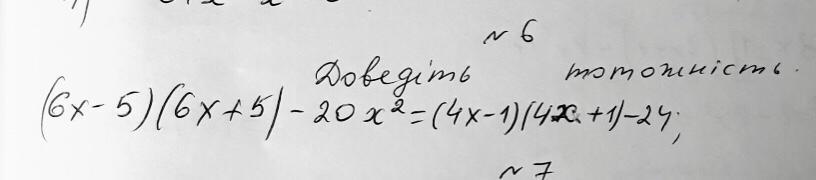 № 6
Доведіть тотожність.
(6x-5)(6x+5)-20x²=(4x-1)(4x+1)-24;
№ 7